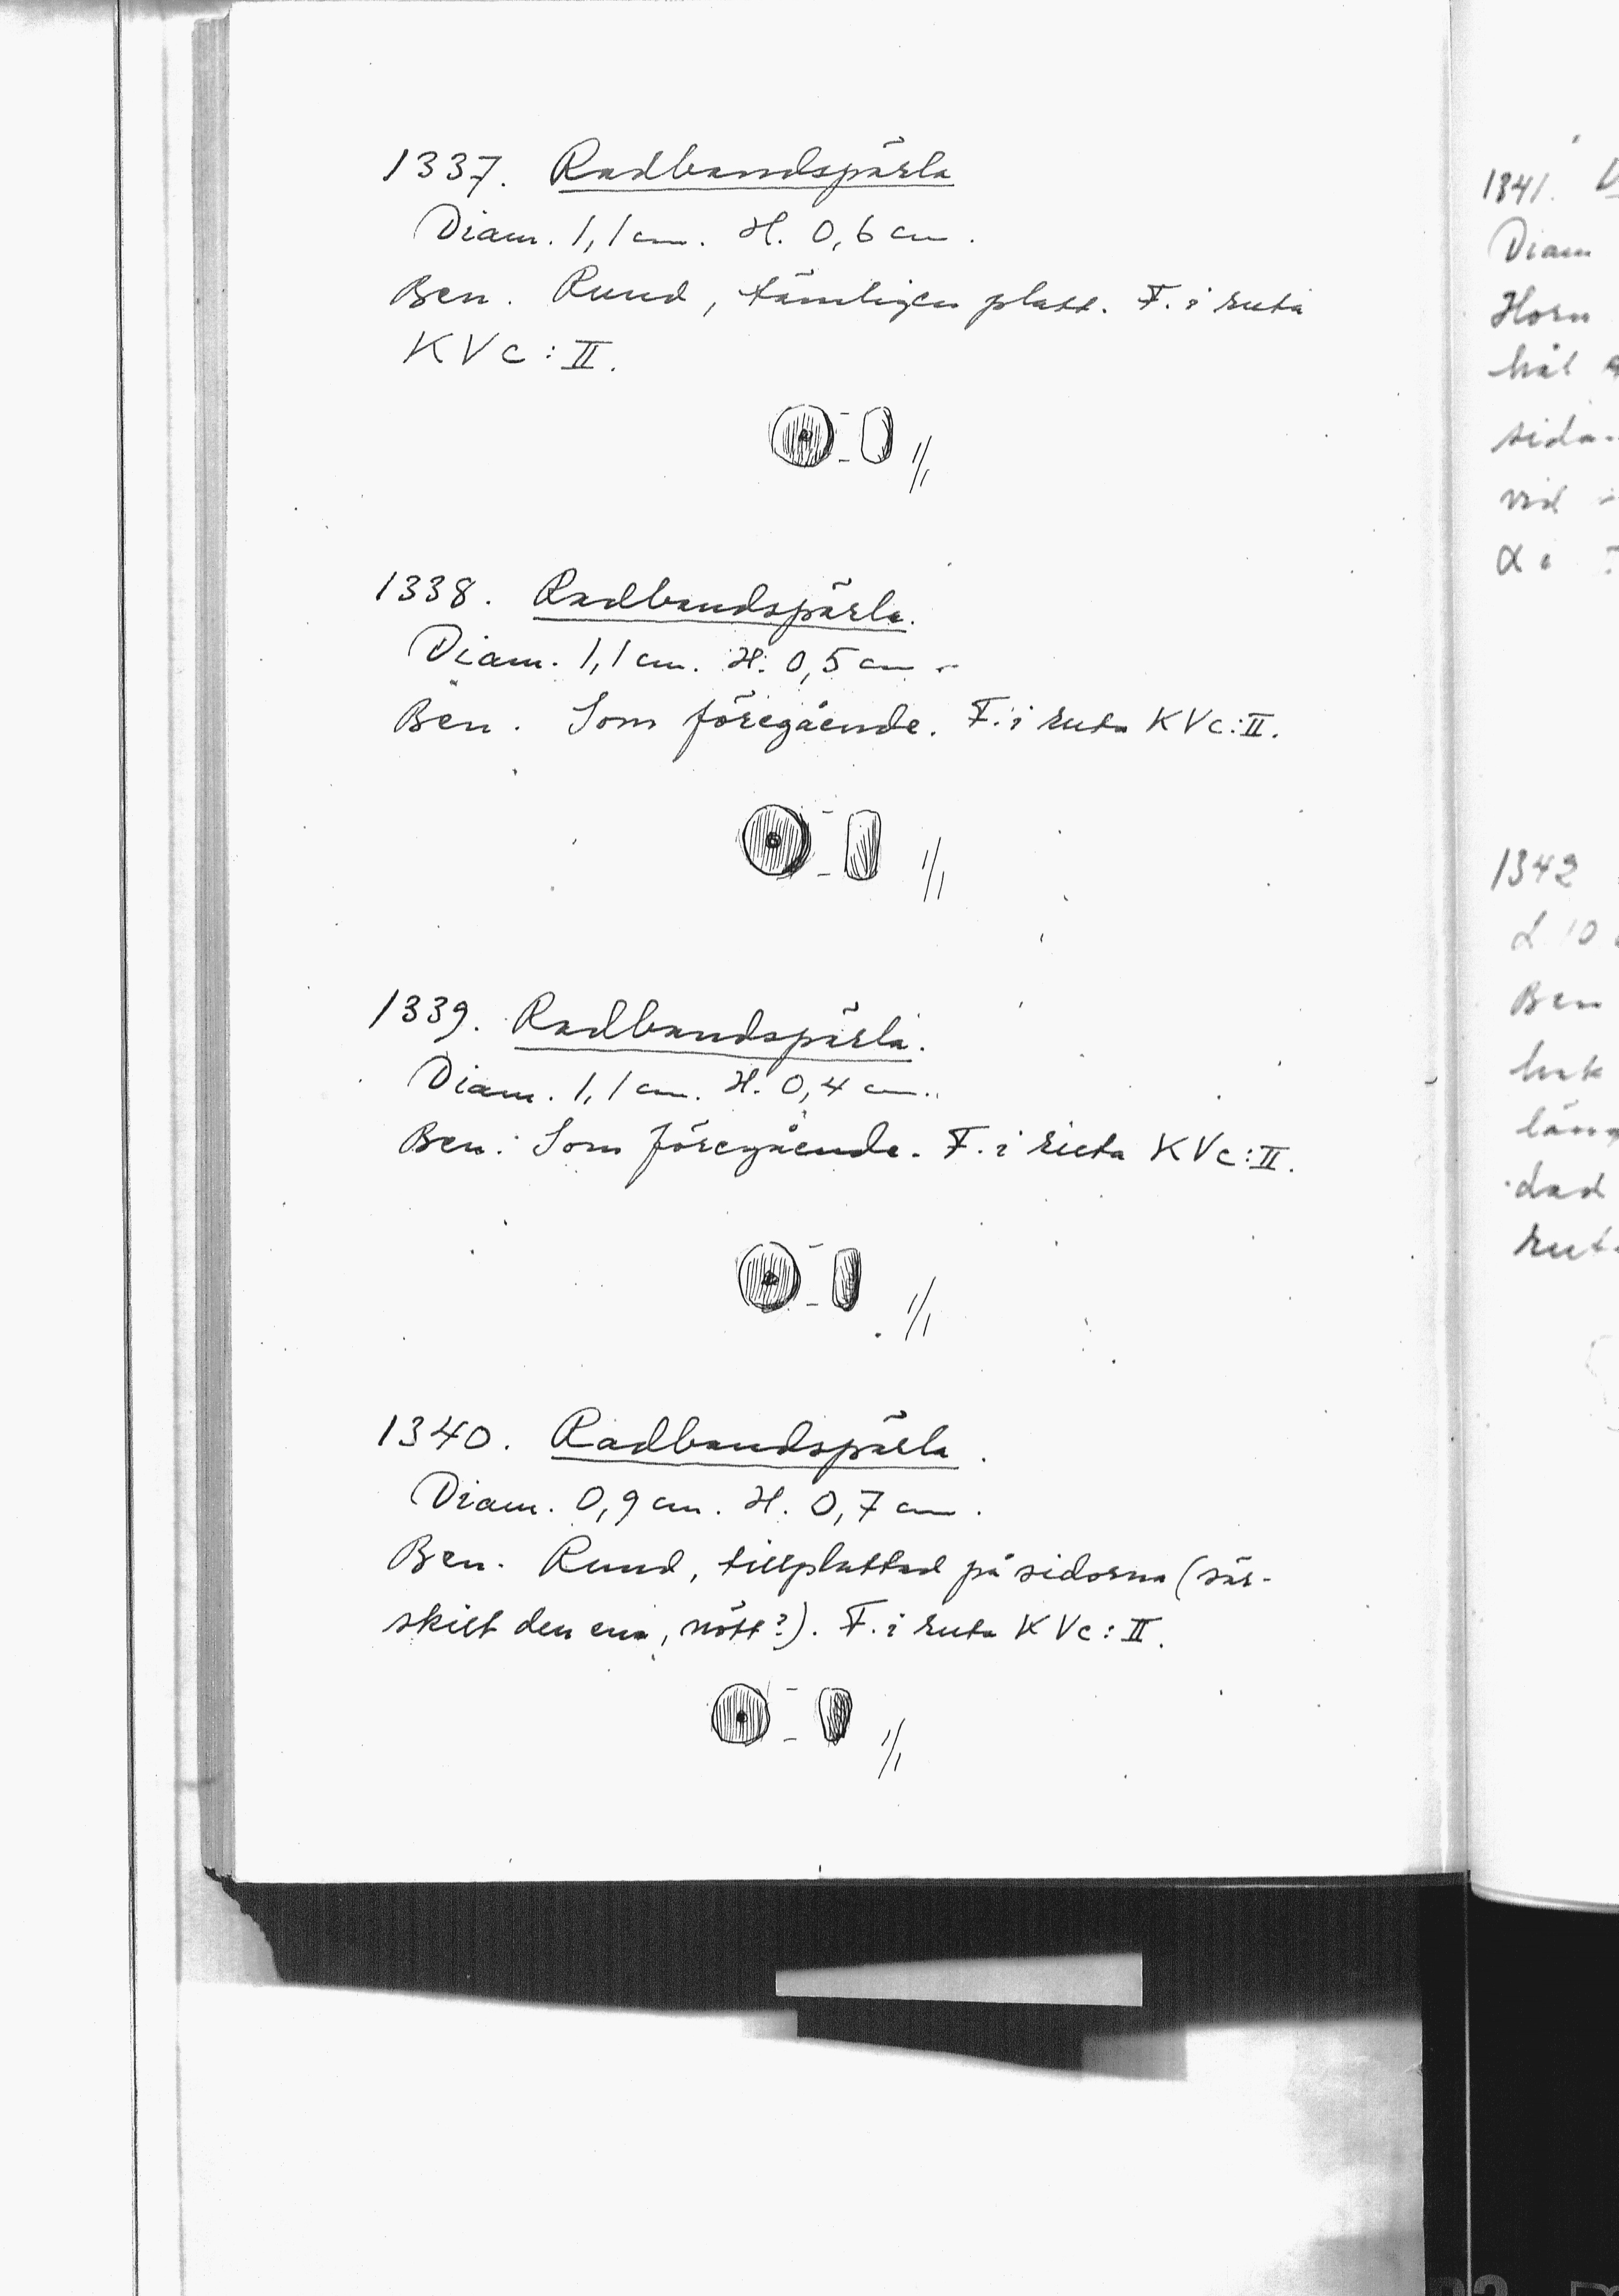 1337. Radbandspärla
Diam. 1,1 cm. H. 0,6 cm.
Ben. Rund, tämligen platt. F. i ruta
KVc:II.
1/1
1338. Radbandspärla.
Diam. 1,1 cm. H. 0,5 cm.
Ben. Som föregående. F. i ruta KVc:II.
1/1
1339. Radbandspärla.
Diam. 1,1 cm. H. 0,4 cm.
Ben. Som föregående. F. i ruta KVc:II.
1/1
1340. Radbandspärla.
Diam. 0,9 cm. H. 0,7 cm.
Ben. Rund, tillplattad på sidorna (sär-
skilt den ena, nött?). F. i ruta KVc:II.
1/1
1341.
Diam
Horn
hål
sida
vid
1342
L 10
Ben
läng
dad
ruta